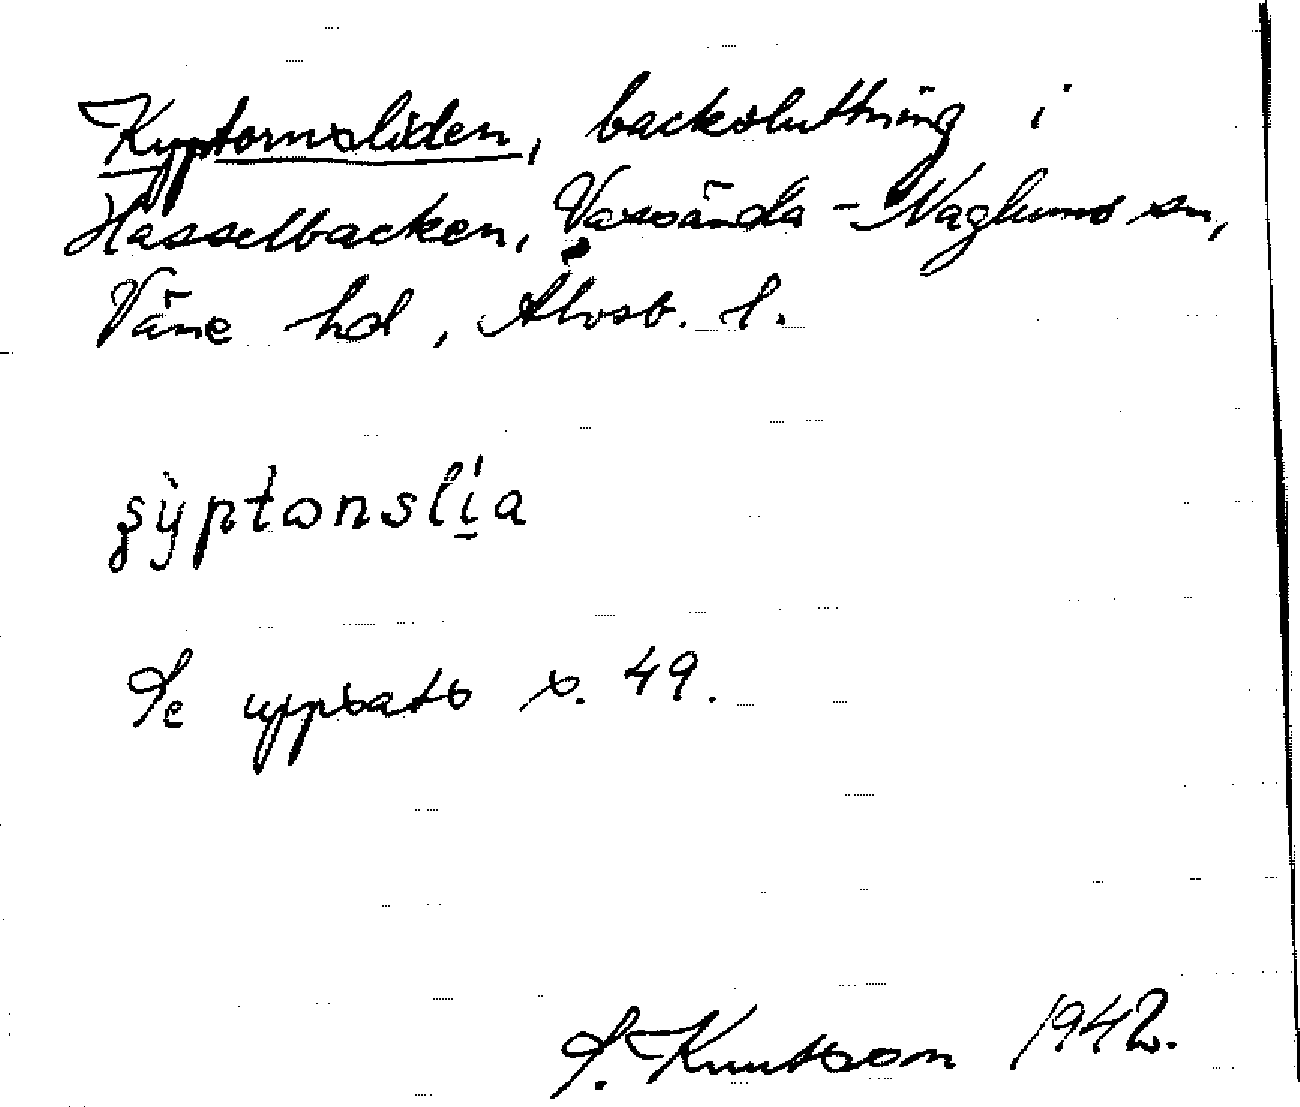 Kyptornsliden, backsluttning i
Hasselbacken, Vassända-Naglums sn,
Väne hd, Älvsb. l.
şỳptonslí̱a
Se uppsats s. 49.
S. Knutsson 1942.